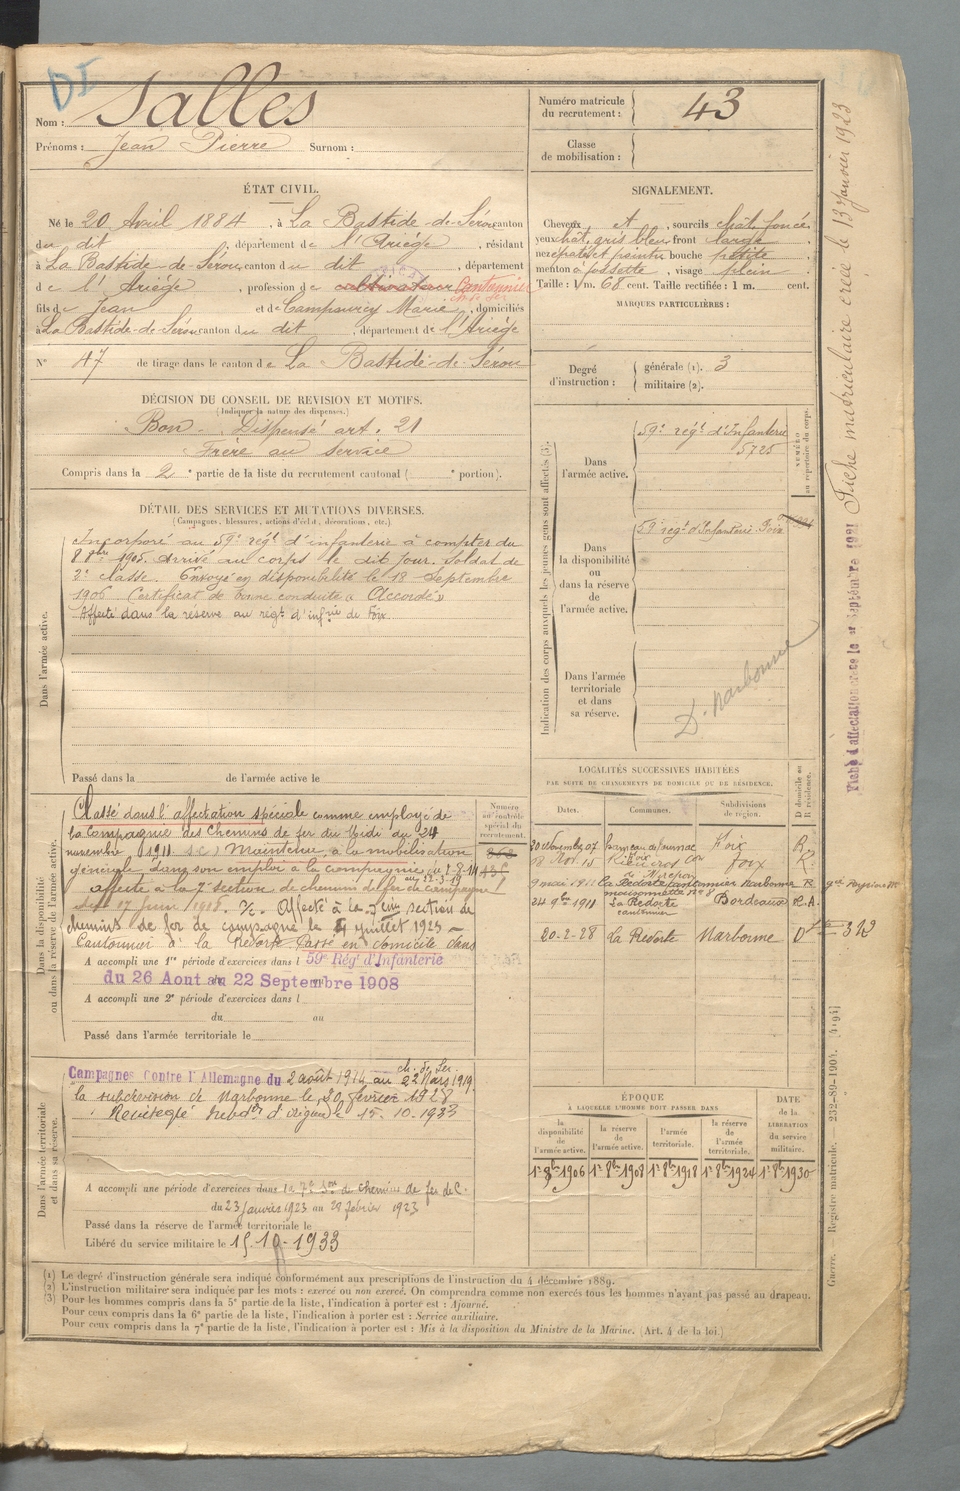 DI
Nom : Salles
Prénoms : Jean Pierre Surnom :
Numéro matricule du recrutement : 43
Classe de mobilisation :
ÉTAT CIVIL.
Né le 20 Avril 1884, à La Bastide-de-Sérou canton
du dit, département de l'Ariège, résidant
à La Bastide-de-Sérou, canton du dit, département
de l'Ariège, profession de cultivateur Cantonnier
ch. de fer
fils de Jean et de Campourcy Marie, domiciliés
à La Bastide-de-Sérou canton du dit, département de l'Ariège
N° 47 de tirage dans le canton de La Bastide-de-Sérou
SIGNALEMENT.
Cheveux et, sourcils chât. foncé,
yeux chât. gris bleu front large,
nez épaté et pointu bouche petite,
menton à fossette, visage plein
Taille : 1 m. 68 cent. Taille rectifiée : 1 m. cent.
MARQUES PARTICULIÈRES :
Degré d'instruction : générale (1). 3
militaire (2).
DÉCISION DU CONSEIL DE REVISION ET MOTIFS.
(Indiquer la nature des dispenses.)
Bon - Dispensé art. 21
Frère au service
Compris dans la 2e partie de la liste du recrutement cantonal ( e portion).
DÉTAIL DES SERVICES ET MUTATIONS DIVERSES.
(Campagnes, blessures, actions d'éclat, décorations, etc.)
Dans l'armée active.
Incorporé au 59e régt d'infanterie à compter du
8 8bre 1905. Arrivé au corps le dit jour. Soldat de
2e classe. Envoyé en disponibilité le 18 Septembre
1906. Certificat de bonne conduite « Accordé »
Affecté dans la réserve au régt d'infrie de Foix.
Passé dans la de l'armée active le
Indication des corps auxquels les jeunes gens sont affectés (3).
NUMÉRO au répertoire du corps.
Dans l'armée active.
59e régt d'Infanterie
5725
Dans la disponibilité ou dans la réserve de l'armée active.
59e régt d'Infanterie Foix
Dans l'armée territoriale et dans sa réserve.
D. Narbonne
Dans la disponibilité ou dans la réserve de l'armée active.
Classé dans l'affectation spéciale comme employé de
la Compagnie des Chemins de fer du Midi du 24
novembre 1911. Maintenu, à la mobilisation
générale, dans son emploi à la compagnie
affecté à la 7e section de chemins de fer de campagne
Affecté à la 5eme section de
chemins de fer de campagne le juillet 1923 -
Cantonnier à la Redorte Passé en domicile dans
A accompli une 1re période d'exercices dans l 59e Rég d'Infanterie
du 26 Aout au 22 Septembre 1908
A accompli une 2e période d'exercices dans l
du au
Passé dans l'armée territoriale le
Numéro au contrôle spécial du recrutement.
LOCALITÉS SUCCESSIVES HABITÉES
PAR SUITE DE CHANGEMENTS DE DOMICILE OU DE RÉSIDENCE.
Dates. Communes. Subdivisions de région. D domicile ou R résidence.
30 Novembre 07 Foix R
Foix R.
9 mai 1911 La Redorte cantonnier Narbonne R
maisonnette n° 8
24 9bre 1911 La Redorte Bordeaux R.A.
cantonnier
20-2-28 La Redorte Narbonne D 312
Dans l'armée territoriale et dans sa réserve.
Campagnes Contre l'Allemagne du 2 août 1914 au 22 Mars 1919
ch. de fer
la subdivision de Narbonne le 20 février 1928
15.10.1933
A accompli une période d'exercices dans la 7e Son de chemins de fer de C.
du 23 janvier 1923 au 28 février 1923
Passé dans la réserve de l'armée territoriale le
Libéré du service militaire le 15-10-1933
ÉPOQUE
À LAQUELLE L'HOMME DOIT PASSER DANS
la disponibilité de l'armée active.
la réserve de l'armée active.
l'armée territoriale.
la réserve de l'armée territoriale.
DATE de la LIBÉRATION du service militaire.
1er 8bre 1906 1er 8bre 1908 1er 8bre 1918 1er 8bre 1924 1er 8bre 1930
(1) Le degré d'instruction générale sera indiqué conformément aux prescriptions de l'instruction du 4 décembre 1889.
(2) L'instruction militaire sera indiquée par les mots : exercé ou non exercé. On comprendra comme non exercés tous les hommes n'ayant pas passé au drapeau.
(3) Pour les hommes compris dans la 5e partie de la liste, l'indication à porter est : Ajourné.
Pour ceux compris dans la 6e partie de la liste, l'indication à porter est : Service auxiliaire.
Pour ceux compris dans la 7e partie de la liste, l'indication à porter est : Mis à la disposition du Ministre de la Marine. (Art. 4 de la loi.)
Fiche matriculaire créée le 13 Janvier 1923
Fiche d'affectation créée le 1er septembre 1921
Guerre. Registre matricule. 232-89-1904. [4194]